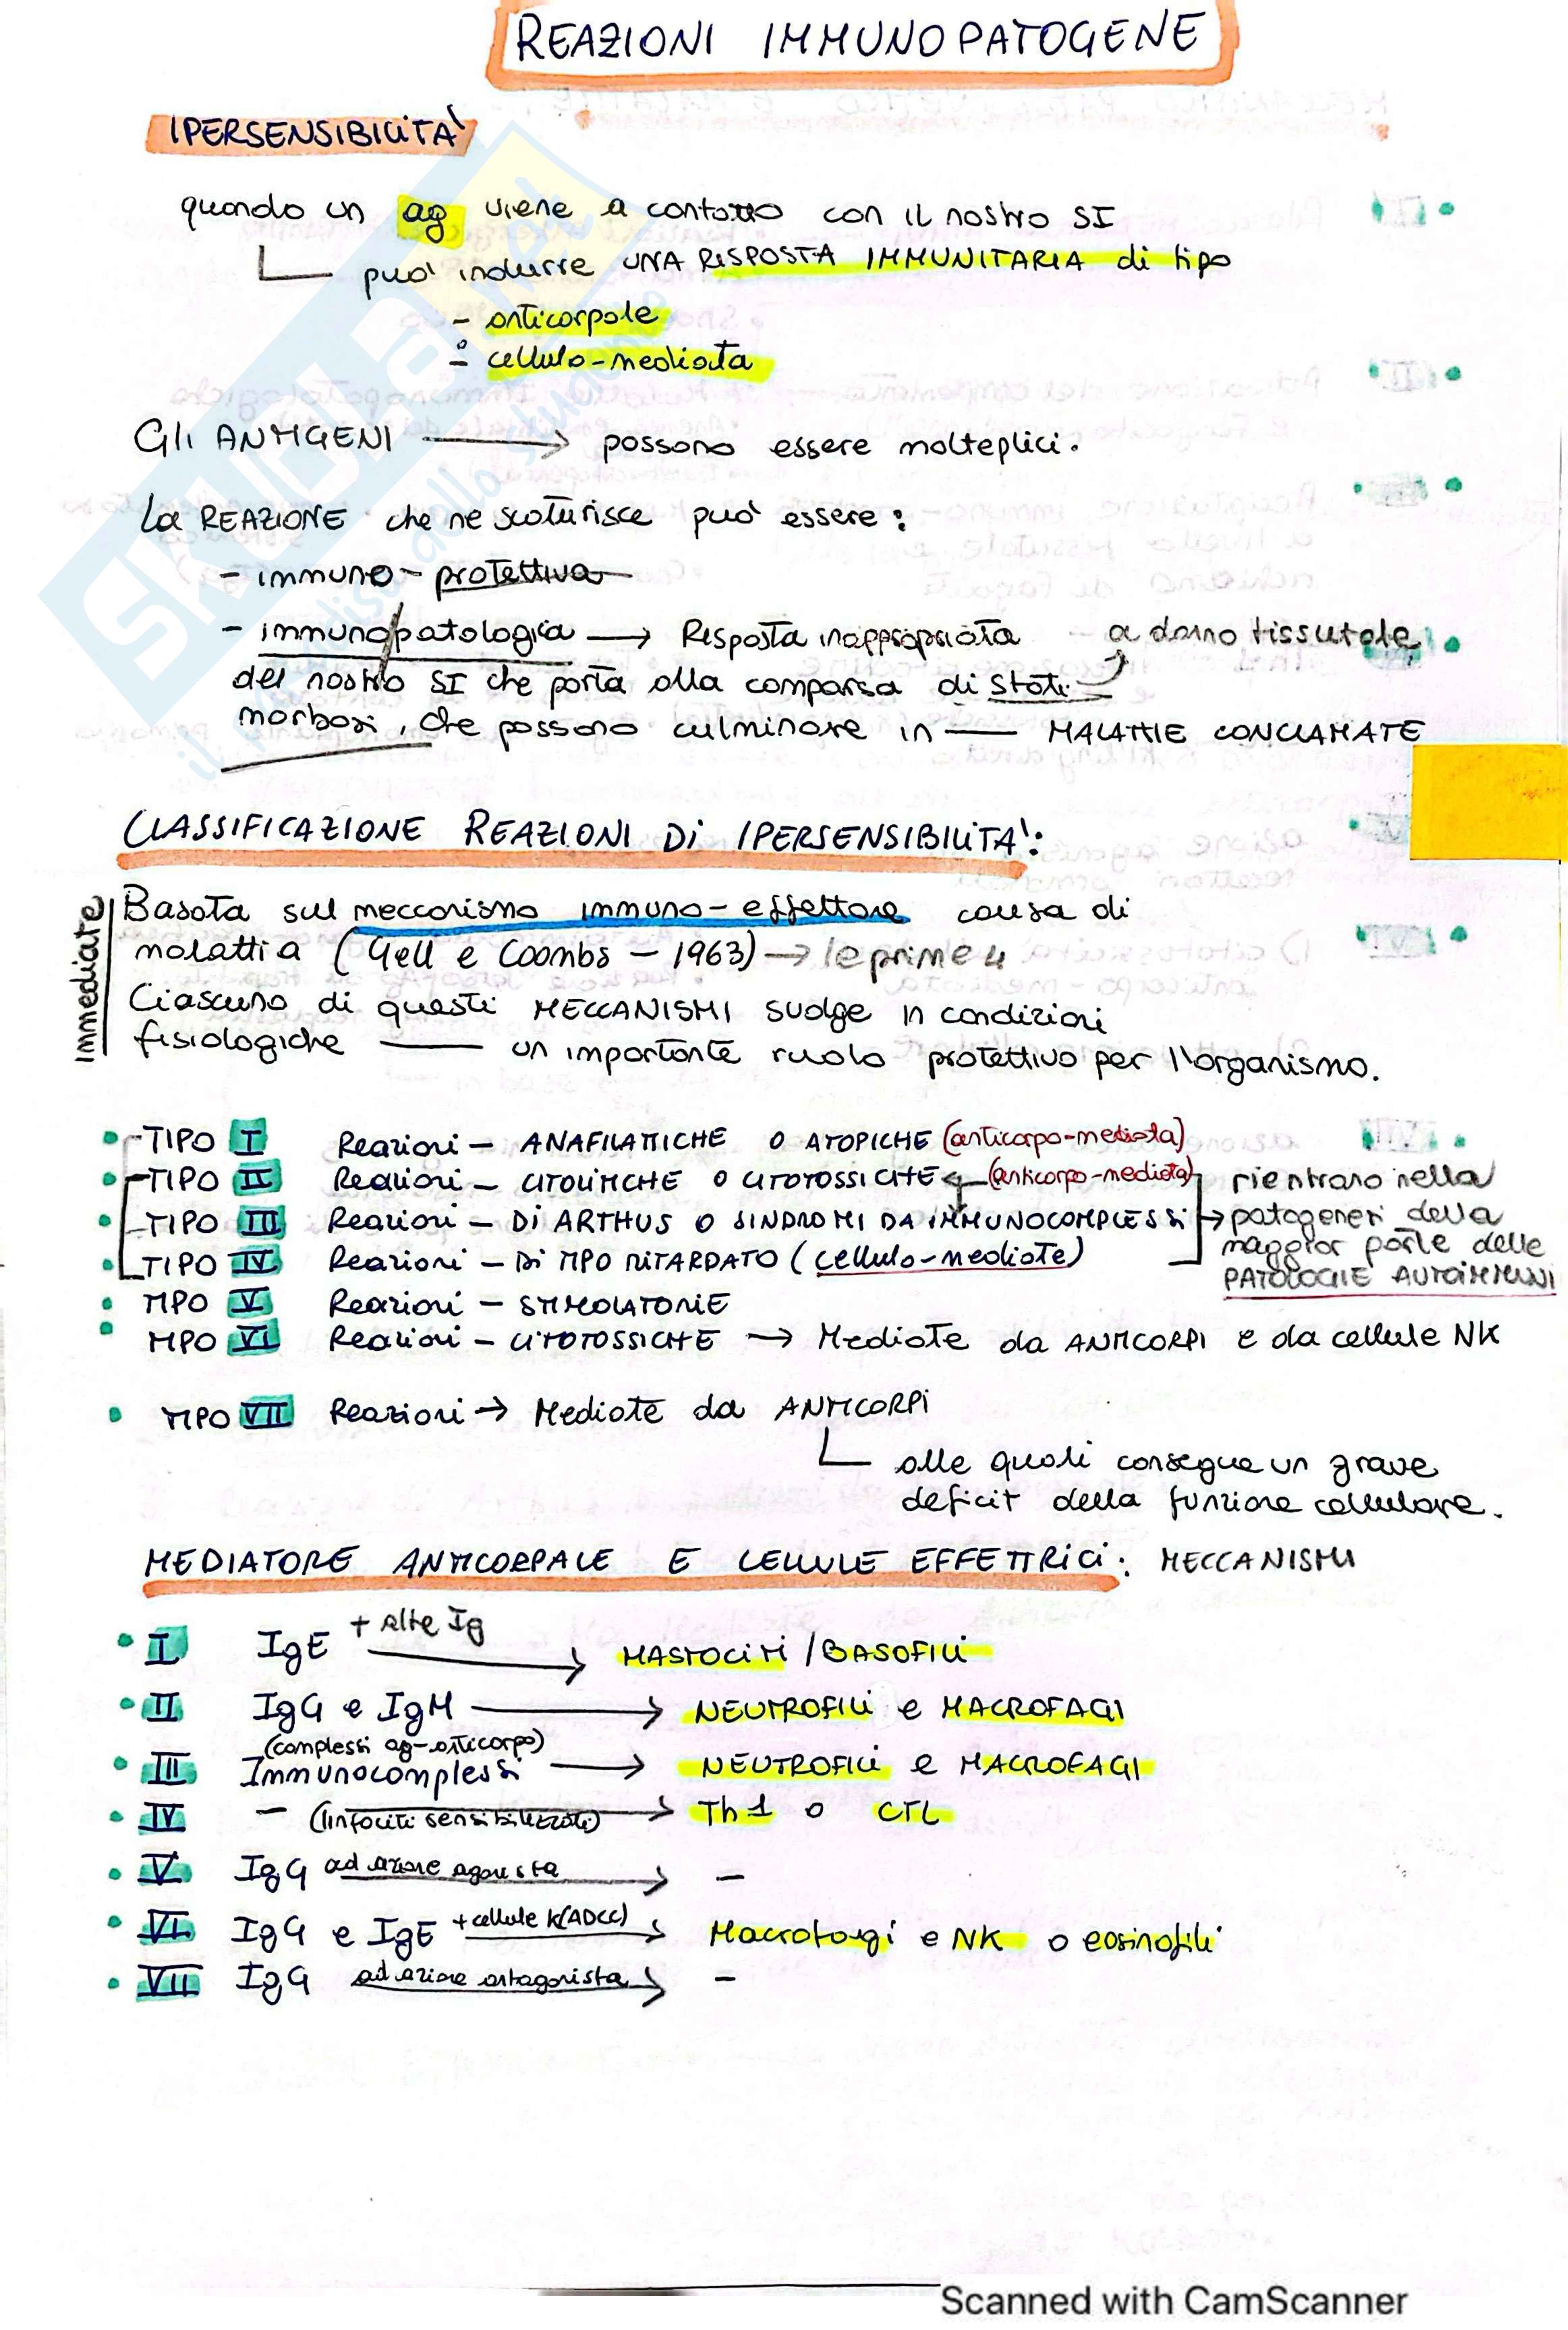 REAZIONI IMMUNOPATOGENE
IPERSENSIBILITA'
quando un ag viene a contatto con il nostro SI
può indurre UNA RISPOSTA IMMUNITARIA di tipo
- anticorpale
o
- cellulo-mediata
Gli ANTIGENI → possono essere molteplici.
La REAZIONE che ne scaturisce può essere:
- immuno-protettiva
- immunopatologica → Risposta inappropriata a danno tissutale
del nostro SI che porta alla comparsa di stati
morbosi, che possono culminare in — MALATTIE CONCLAMATE
CLASSIFICAZIONE REAZIONI Di IPERSENSIBILITA':
immediate
Basata sul meccanismo immuno-effettore causa di
malattia (Gell e Coombs - 1963) → le prime 4
Ciascuno di questi MECCANISMI svolge in condizioni
fisiologiche — un importante ruolo protettivo per l'organismo.
TIPO I Reazioni - ANAFILATTICHE O ATOPICHE (anticorpo-mediata)
TIPO II Reazioni - CITOLITICHE O CITOTOSSICHE ← (anticorpo-mediata)
TIPO III Reazioni - Di ARTHUS O SINDROMI DA IMMUNOCOMPLESSI
TIPO IV Reazioni - Di TIPO RITARDATO (cellulo-mediate)
→ rientrano nella
patogenesi della
maggior parte delle
PATOLOGIE AUTOIMMUNI
TIPO V Reazioni - STIMOLATORIE
TIPO VI Reazioni - CITOTOSSICHE → Mediate da ANTICORPI e da cellule NK
TIPO VII Reazioni → Mediate da ANTICORPI
alle quali consegue un grave
deficit della funzione cellulare.
MEDIATORE ANTICORPALE E CELLULE EFFETTRICI: MECCANISMI
I IgE + altre Ig → MASTOCITI / BASOFILI
II IgG e IgM → NEUTROFILI e MACROFAGI
(complessi ag-anticorpo)
III Immunocomplessi → NEUTROFILI e MACROFAGI
IV - (linfociti sensibilizzati) → Th1 o CTL
V IgG ad azione agonista → -
VI IgG e IgE + cellule K(ADCC) → Macrofagi e NK o eosinofili
VII IgG ad azione antagonista → -
SKUOLA.net
il paradiso dello studente
Scanned with CamScanner